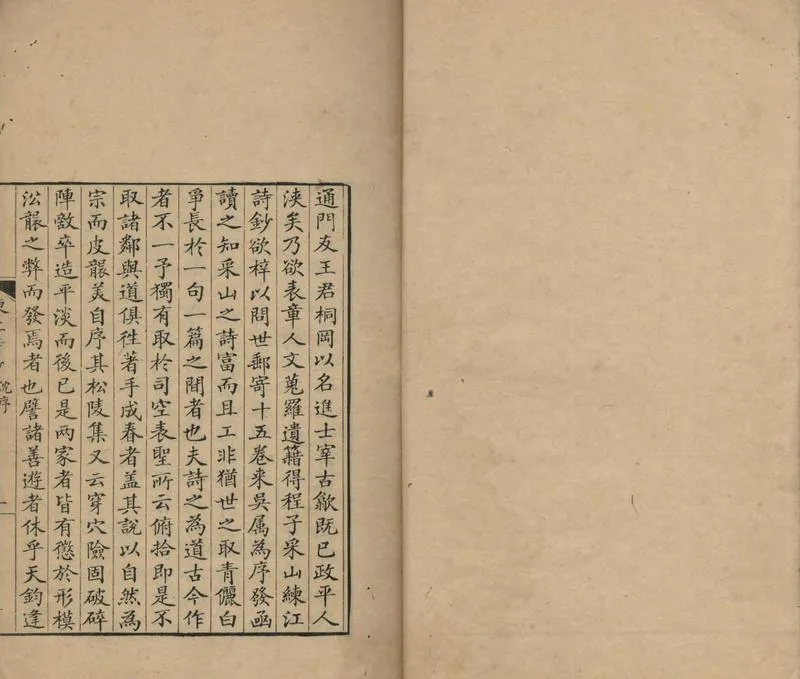 通門友王君桐岡以名進士宰古歙既已政平人
浹矣乃欲表章人文蒐羅遺籍得程子采山練江
詩鈔欲梓以問世郵寄十五卷来吳属為序發函
讀之知采山之詩富而且工非猶世之取青儷白
爭長於一句一篇之間者也夫詩之為道古今作
者不一予獨有取於司空表聖所云俯拾即是不
取諸鄰與道俱徃著手成春者盖其說以自然為
宗而皮襲美自序其松陵集又云穿穴險固破碎
陣敵卒造平淡而後已是两家者皆有懲於形模
沿襲之弊而發焉者也譬諸善遊者休乎天鈞逢
沈序
一